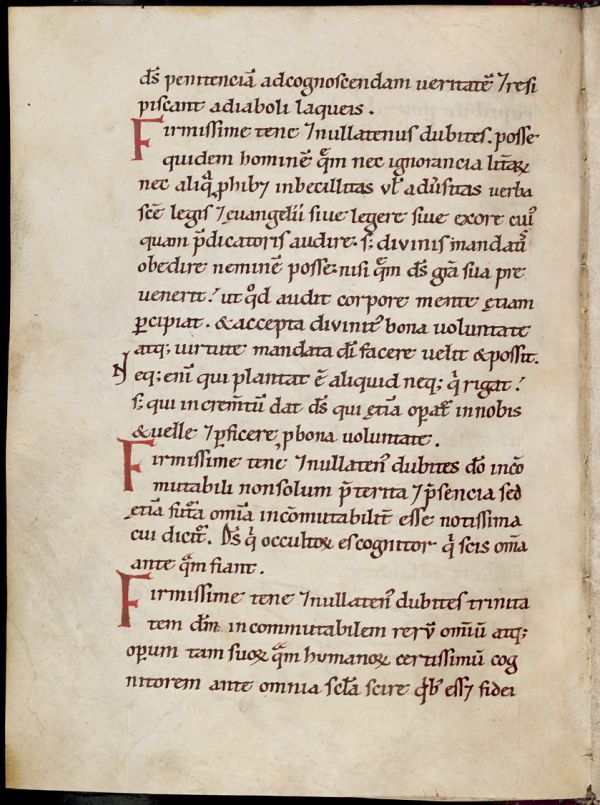 ds̄ penitenciā ad cognoscendam veritatē ⁊ resi
piscant a diaboli laqueis.
Firmissime tene ⁊ nullatenus dubites. posse
quidem hominē quē nec ignorancia litꝝ
nec aliqͣ ꝓhibꝫ inbecillitas vl̄ adūsitas verba
scē legis ⁊ ęvangelii sive legere sive ex ore cuiꝰ
quam p̄dicatoris audire. s; divinis mandatis
obedire neminē posse. nisi quē ds̄ gr̄a sua pre
venerit. ut qd̄ audit corpore mente ętiam
ꝑcipiat. & accepta divinitꝰ bona voluntate
atq; virtute mandata dī facere velit & possit.
Neq; enī qui plantat ē aliquid neq; qͥ rigat.
s; qui incrementū dat ds̄ qui ętiā opatͬ in nobis
& velle ⁊ ꝑficere, ꝓ bona voluntate.
Firmissime tene, ⁊ nullatenꝰ dubites dō inco
mutabili non solum p̄terita ⁊ p̄sencia sed
ętiā futͣa om̄ia incōmutabilit̄ esse notissima
cui dicit᷑. Ds̄ qͥ occultoꝝ es cognitor qͥ scis om̄ia
ante qͣm fiant.
Firmissime tene ⁊ nullatenꝰ dubites trinita
tem dm̄ incommutabilem rerū omiū atq;
opum tam suoꝝ qͣm humanoꝝ certissimū cog
nitorem ante omnia scl̄a scire qͥbꝰ essꝫ fidei